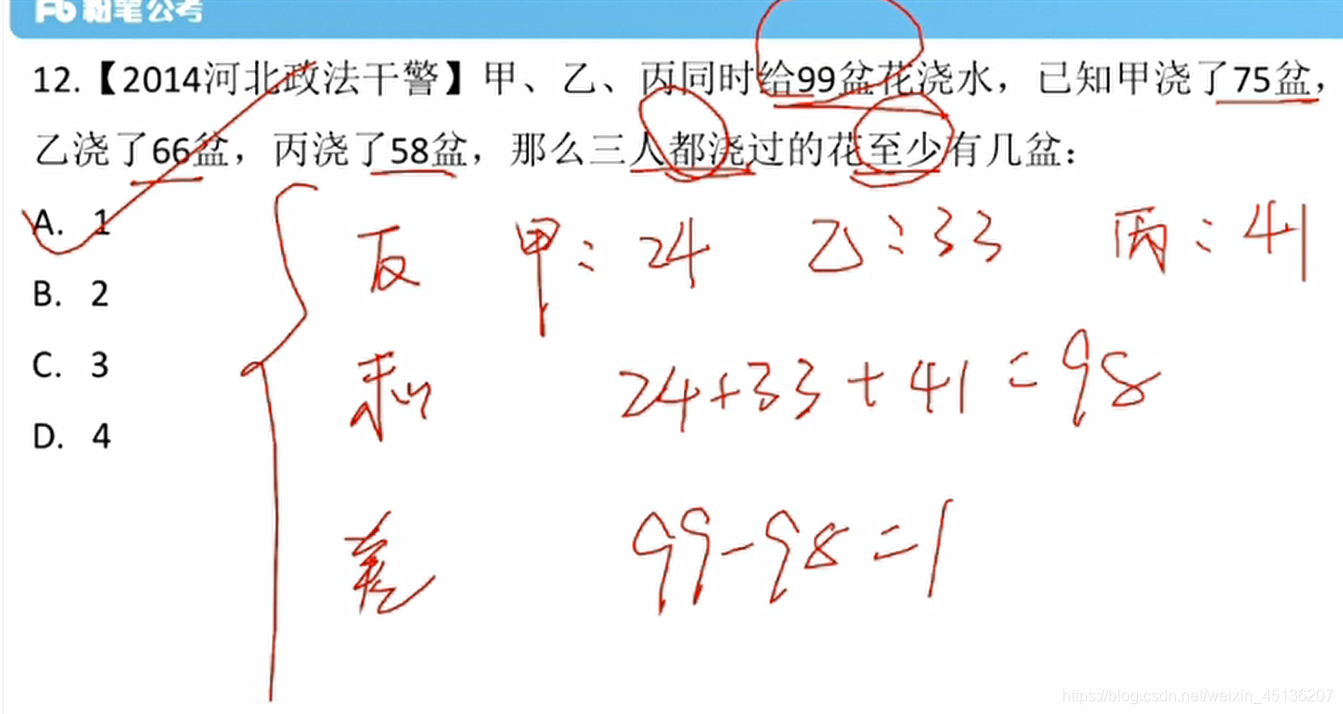 粉笔公考
12.【2014河北政法干警】甲、乙、丙同时给99盆花浇水，已知甲浇了75盆，
乙浇了66盆，丙浇了58盆，那么三人都浇过的花至少有几盆：
A. 1
B. 2
C. 3
D. 4
反 甲：24 乙：33 丙：41
和 24+33+41=98
差 99-98=1
https://blog.csdn.net/weixin_45136207